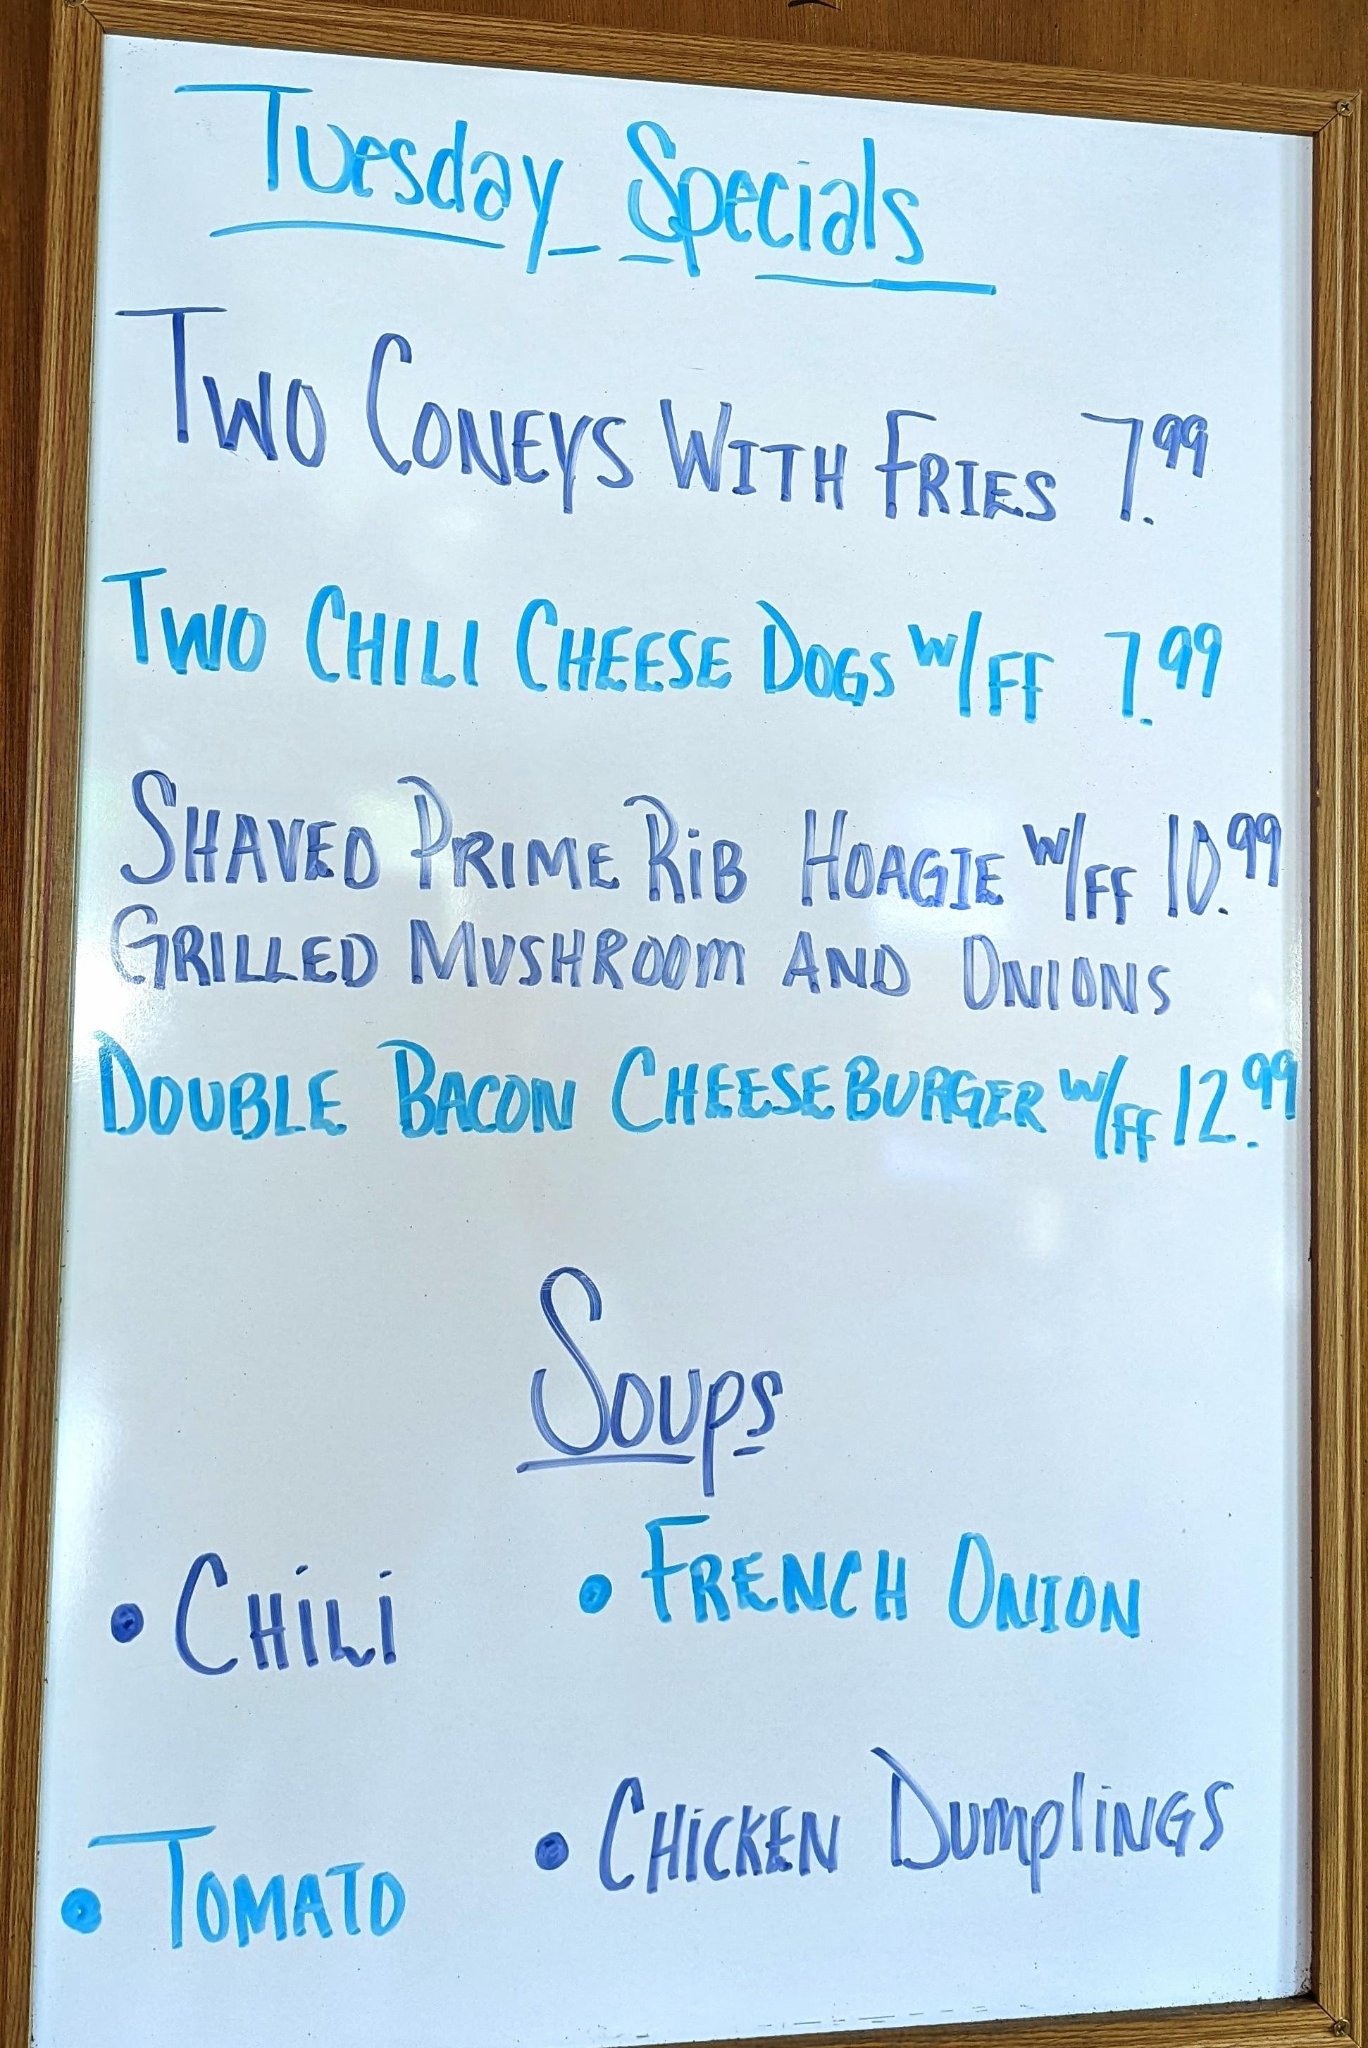 Tuesday Specials
Two Coneys With Fries 7.99
Two Chili Cheese Dogs w/FF 7.99
Shaved Prime Rib Hoagie w/FF 10.99
Grilled Mushroom and Onions
Double Bacon Cheeseburger w/FF 12.99
Soups
• Chili
• French Onion
• Tomato
• Chicken Dumplings